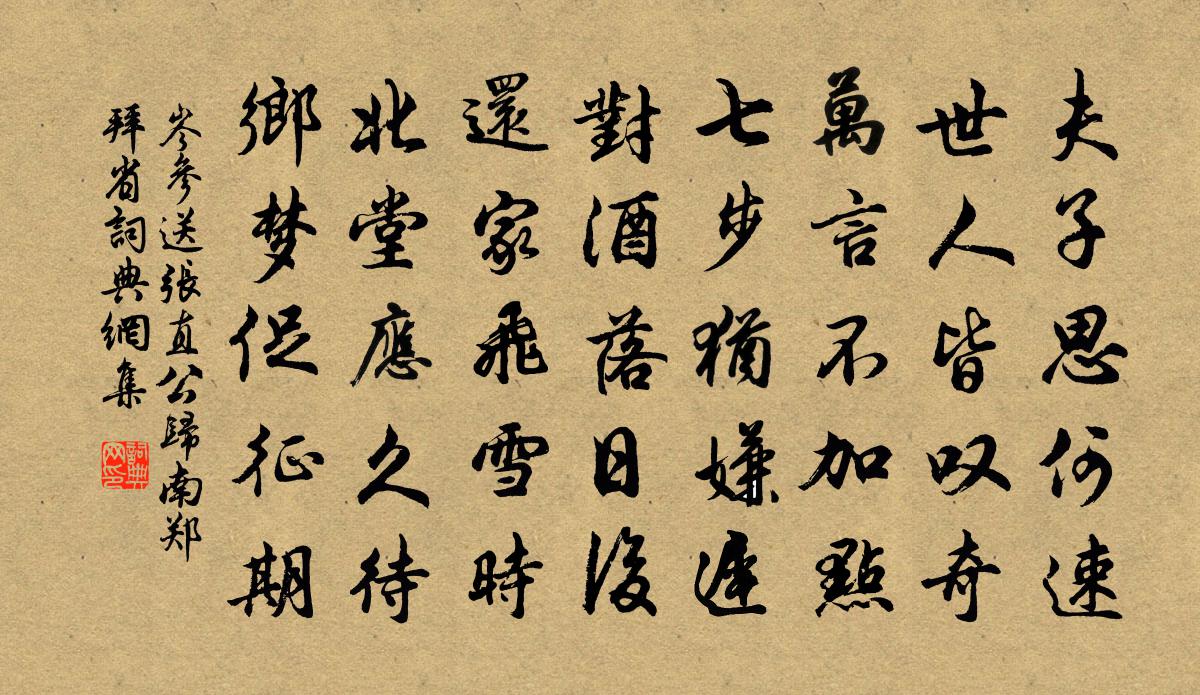 夫子思何速
世人皆叹奇
萬言不加點
七步猶嫌遲
對酒落日後
還家飛雪時
北堂應久待
鄉梦促征期
岑參送張直公歸南郑
拜省詞典網集
詞典
网印